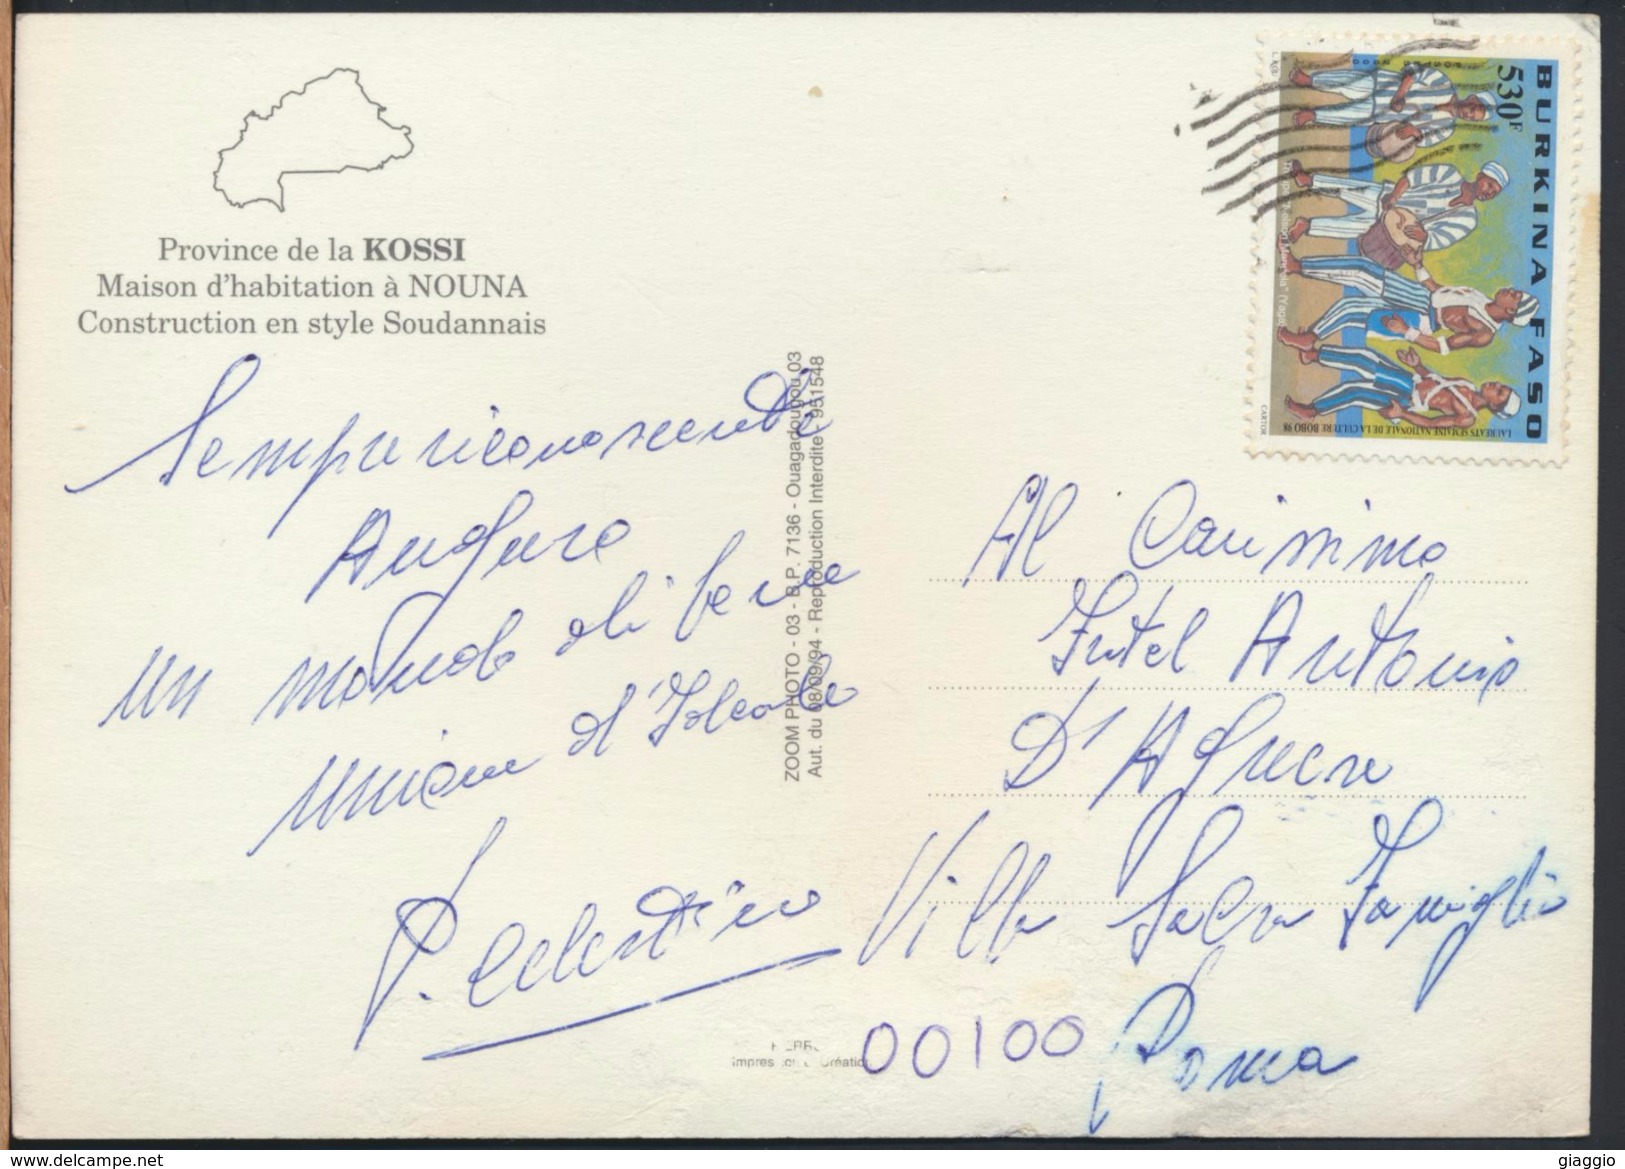 Province de la KOSSI
Maison d'habitation à NOUNA
Construction en style Soudannais
Sempre riconoscente
Auguro
un mondo di bene
unione d'
P. Celestino
ZOOM PHOTO - 03 - B.P. 7136 - Ouagadougou 03
Aut. du 08/09/94 - Reproduction Interdite - 951548
BURKINA FASO
530F
POSTES 2000
LAUREATS SEMAINE NATIONALE DE LA CULTURE BOBO 98
CARTOR
Al Carissimo
Fratel Antonio
D'
Villa Sacra Famiglia
00100 Roma
giaggio